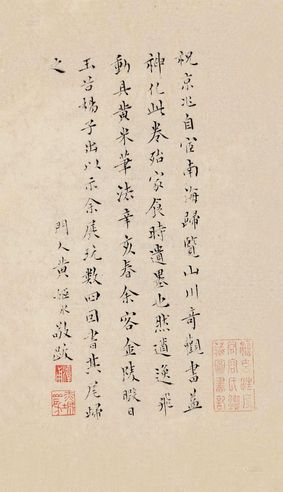 祝京兆自宦南海歸覽山川奇觀書益
神化此卷殆家食時遺墨也然遒逸飛
動具黃米筆法辛亥春余客金陵暇日
玉岩楊子出以示余展玩數四因書其尾歸
之
門人黃姬水敬跋